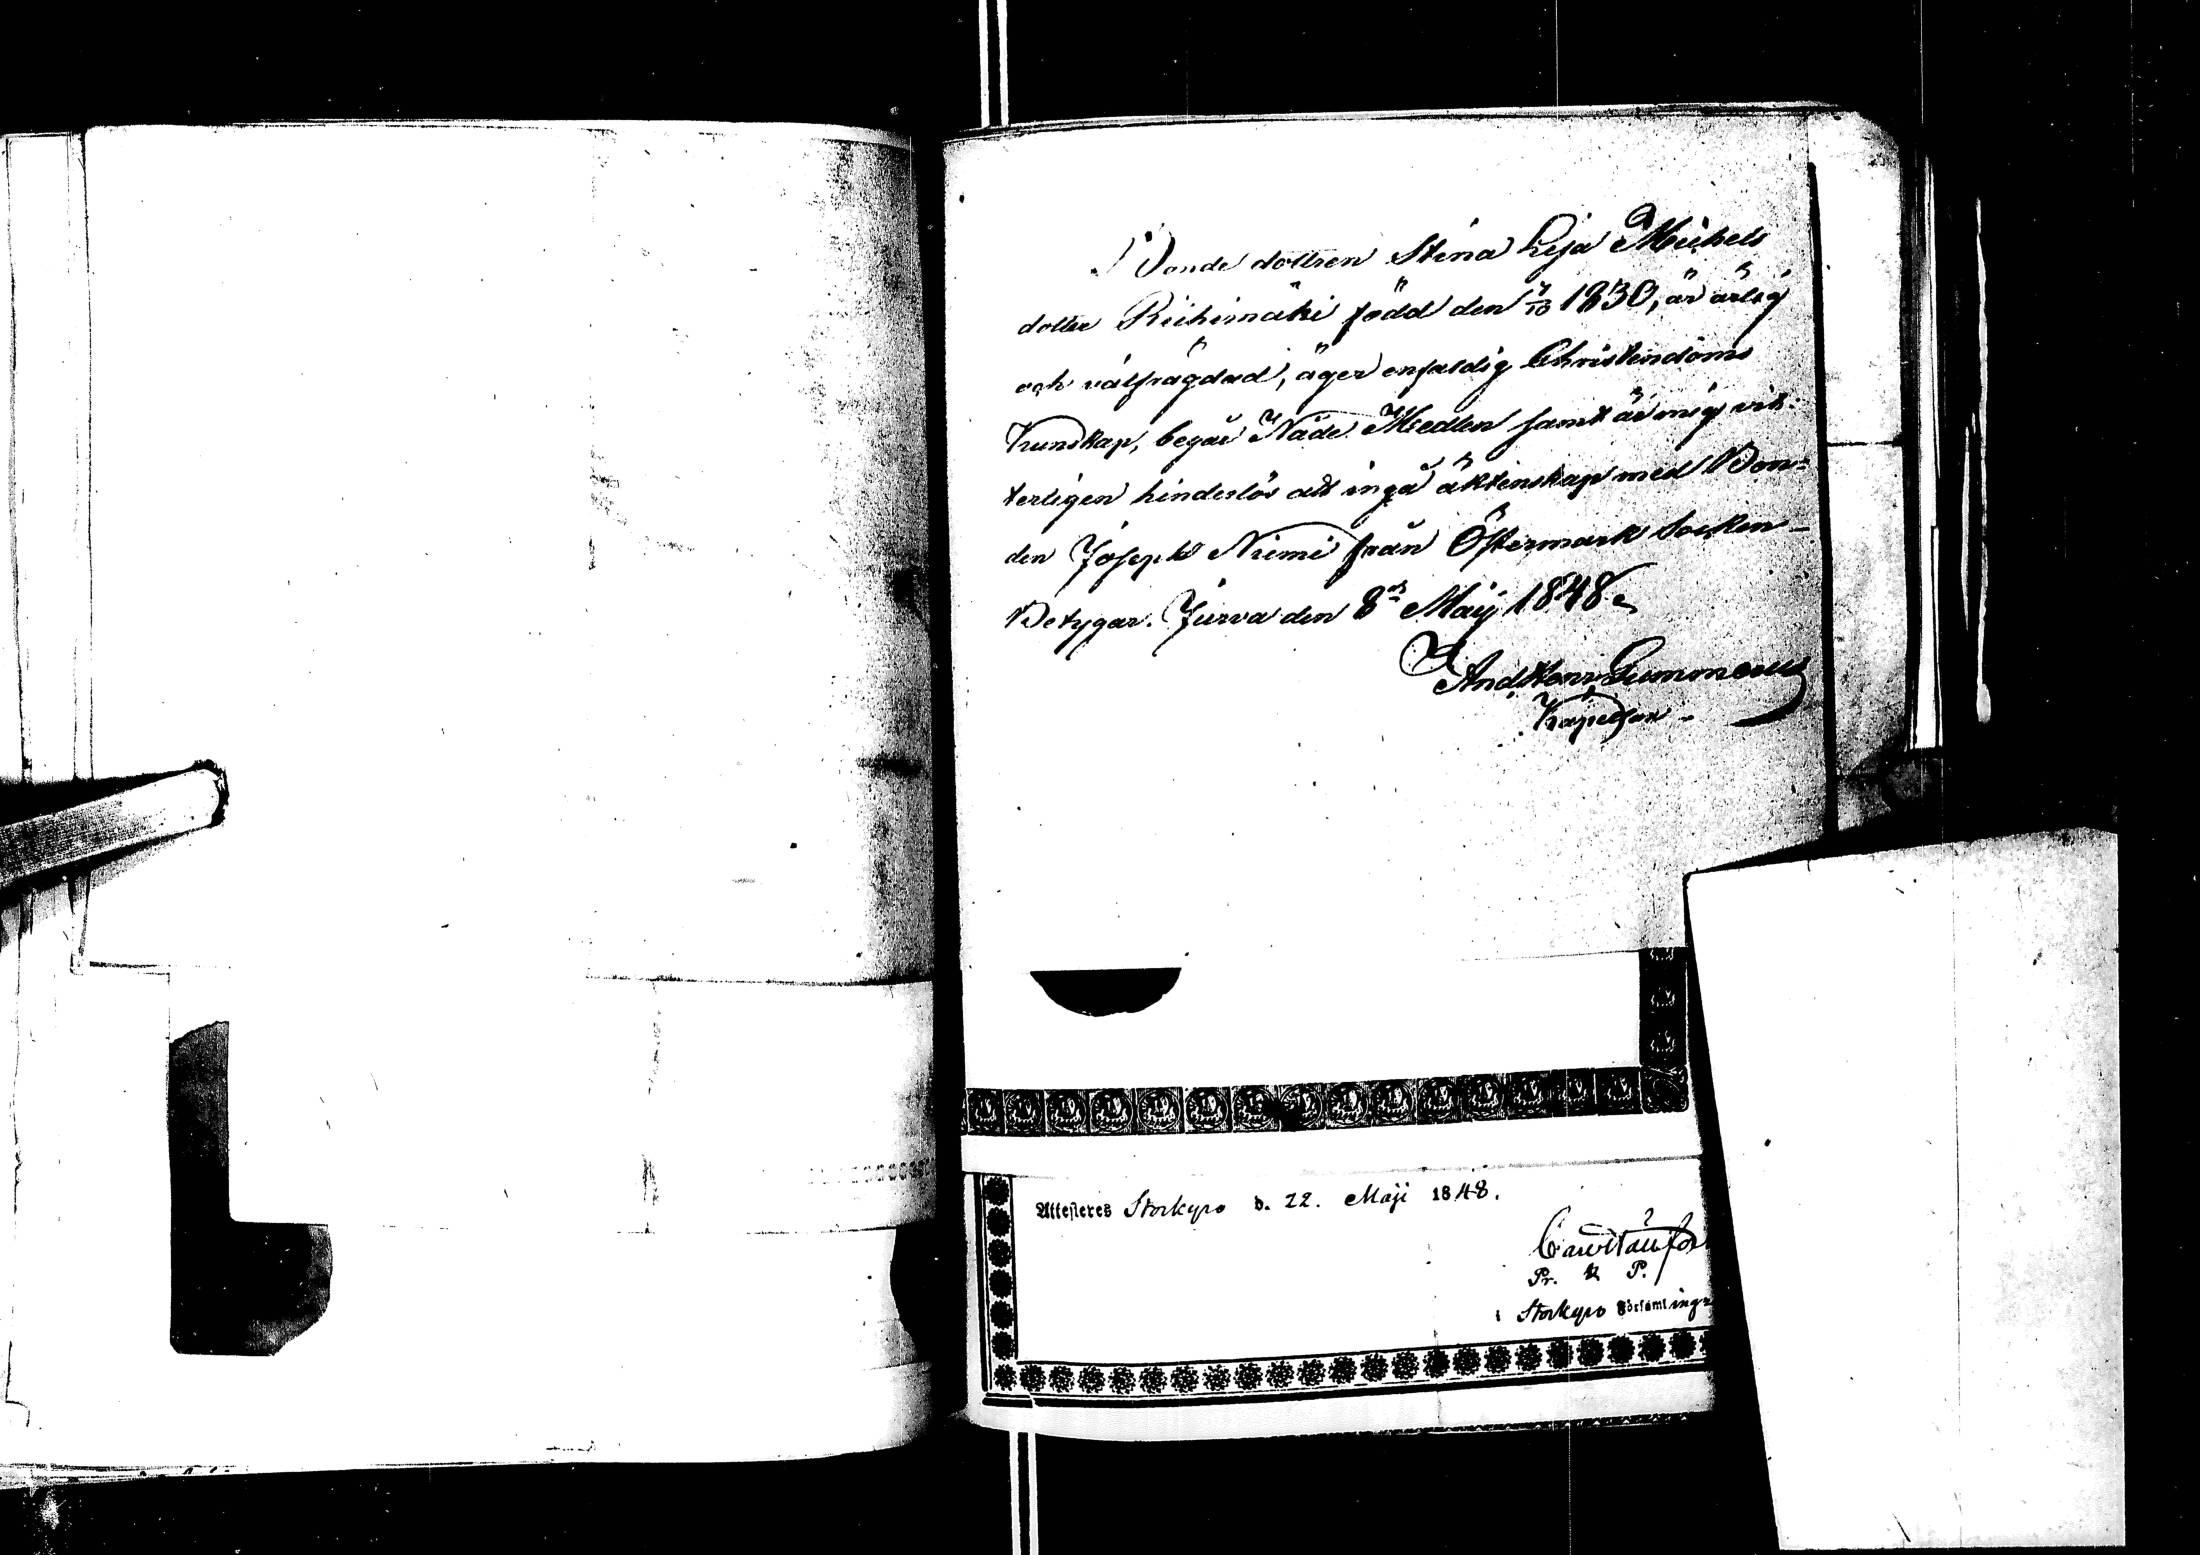 Bonde dottren Stina Lisa Michels
dotter Riihimäki född den 7/10 1830, är ärlig
och välfrägdad, äger enfaldig Christendoms
Kunskap, begår Nåde Medlen samt är mig vit-
terligen hinderlös att ingå äktenskap med Bon-
den Joseph Niemi från Östermark Socken
Betygar. Jurva den 8de Maij 1848.
And. Henr. Gummerus
Kapellan
Attesteres Storkyro d. 22. Maji 1848.
Pr. & P.
i Storkyro Församlings